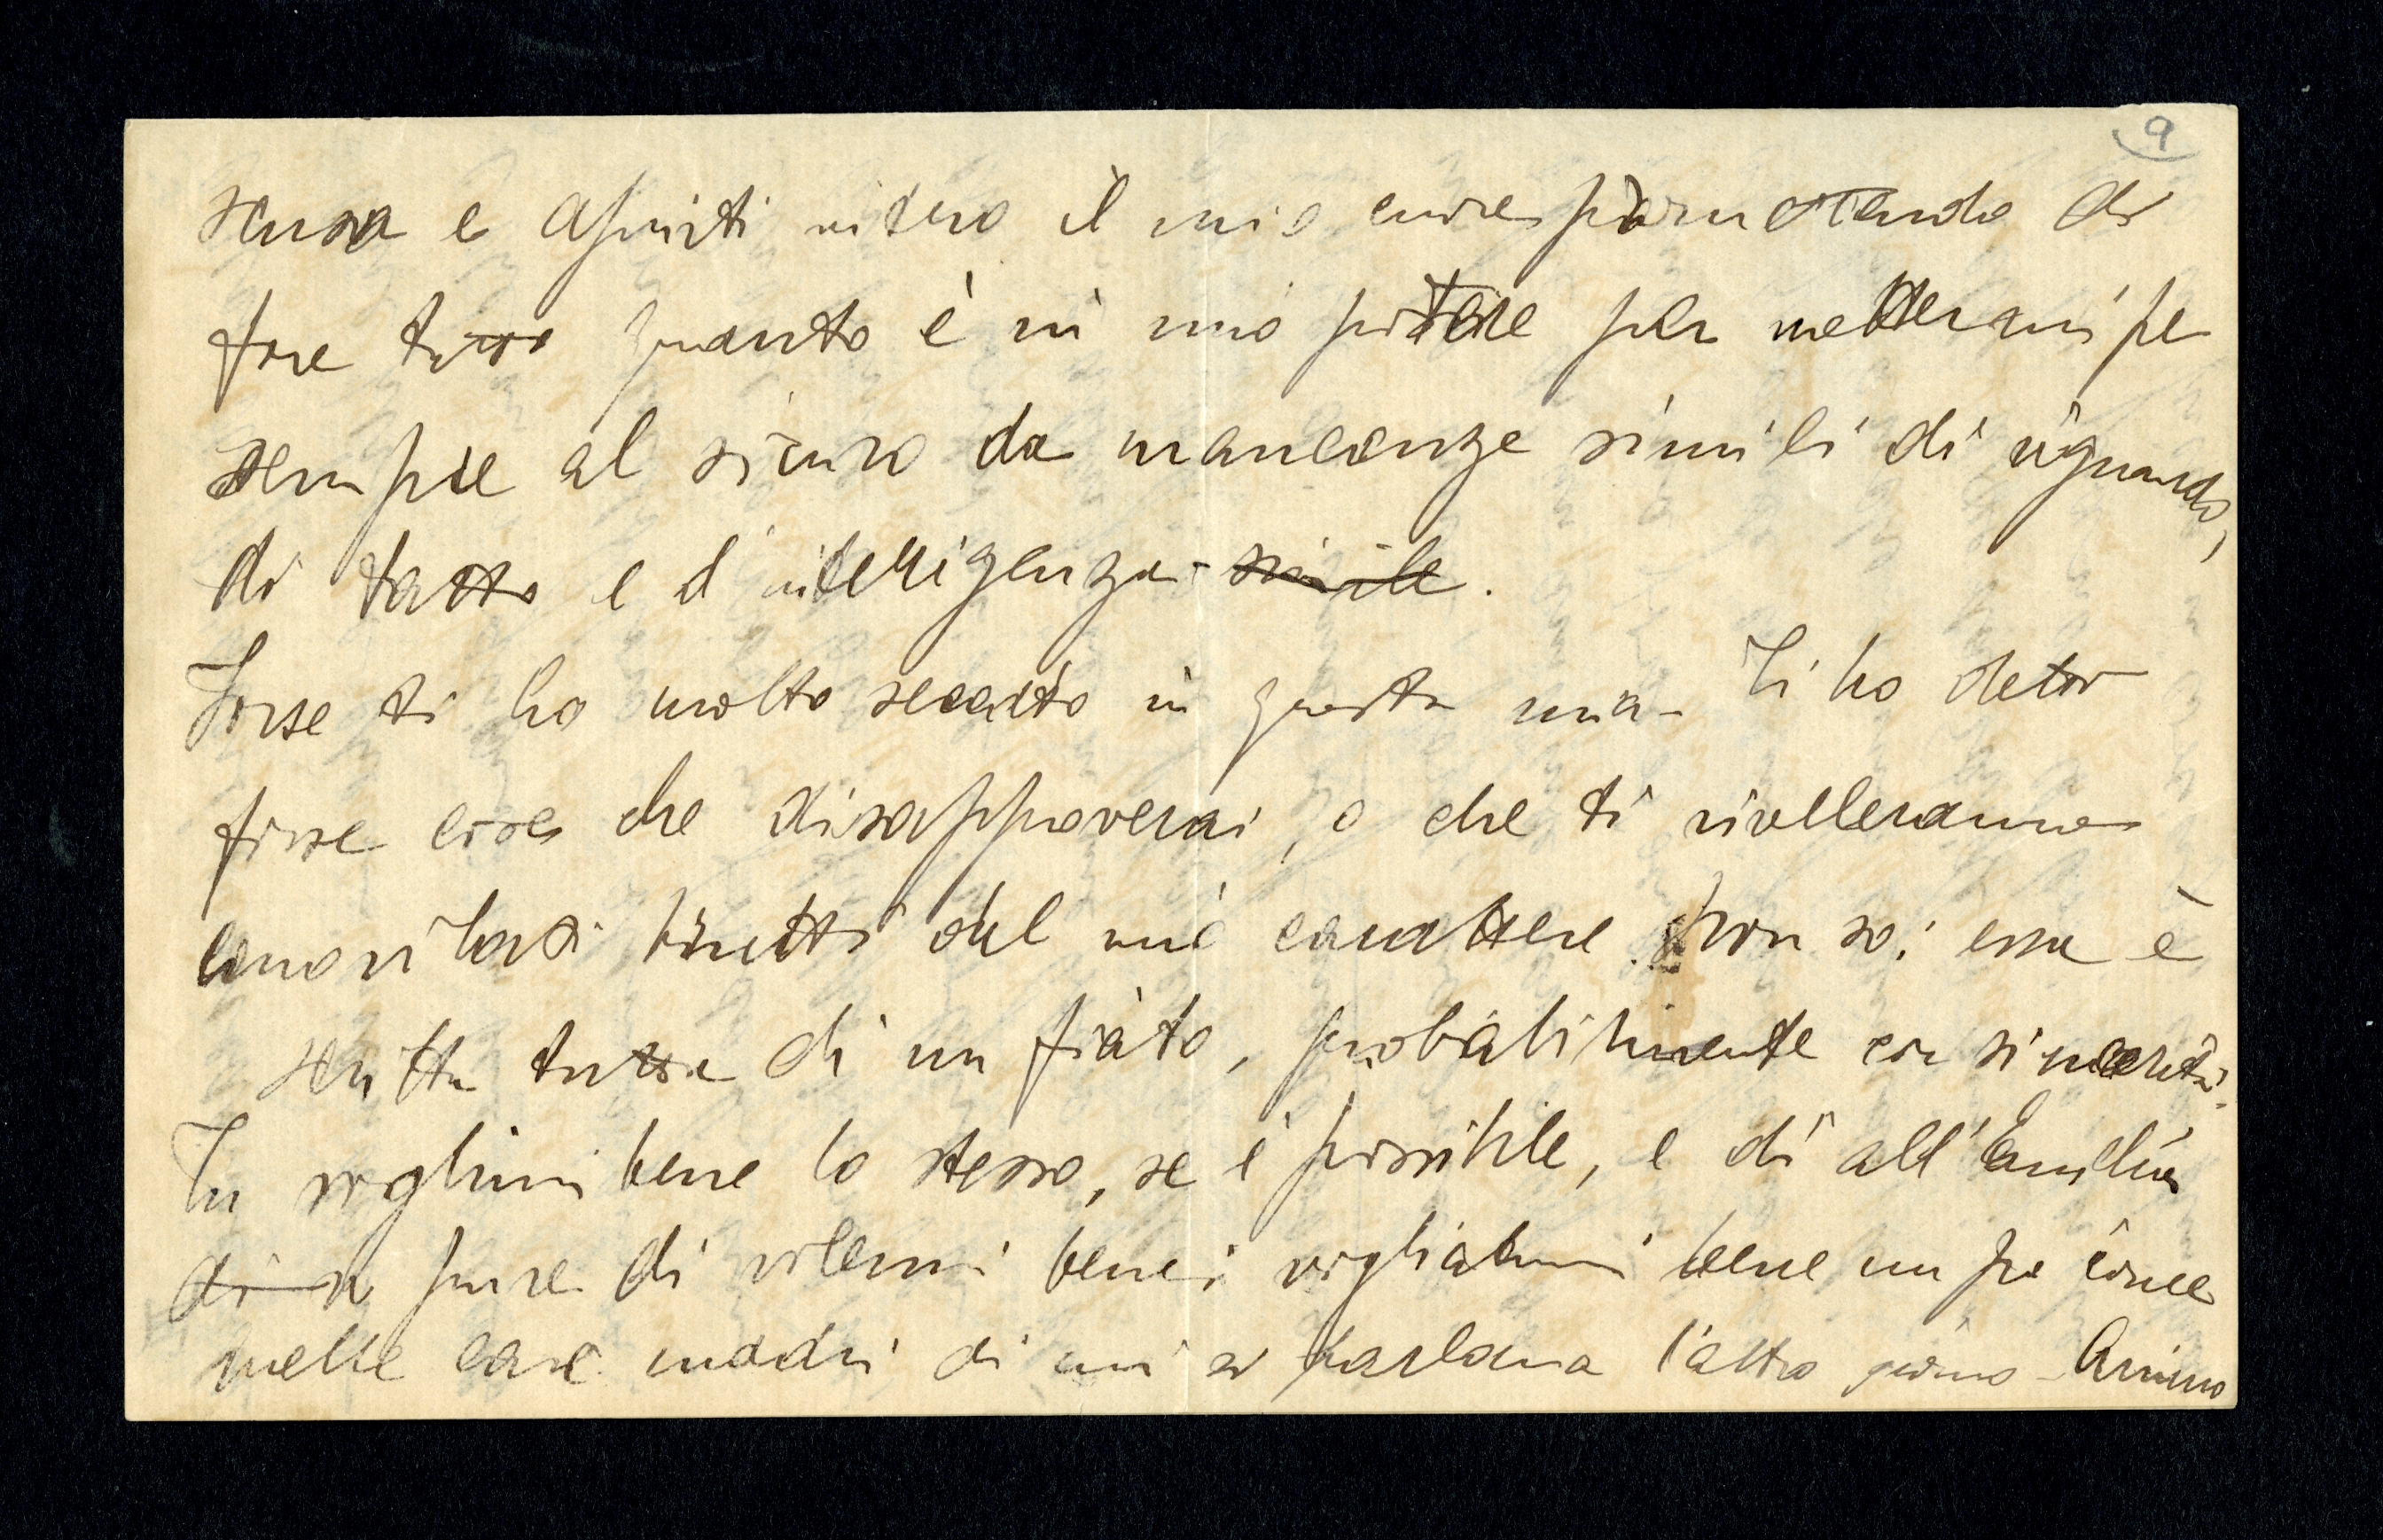 9
scusa e aprirti intero il mio cuore promettendo di
fare tutto quanto è in mio potere per mettermi pe
sempre al sicuro da mancanze simili di riguardo,
di tatto e d'intelligenza simile.
Forse ti ho molto seccato in questa mia - Ti ho detto
forse cose che disapproverai, o che ti riveleranno
certi lati brutti del mio carattere. Non so: essa è
scritta tutta di un fiato, probabilmente con sincerità.
Tu voglimi bene lo stesso, se è possibile, e di all'Emilia
di pure di volermi bene: vogliatemi bene un po' come
quelle care madri di cui si parlava l'altro giorno - Arrivo